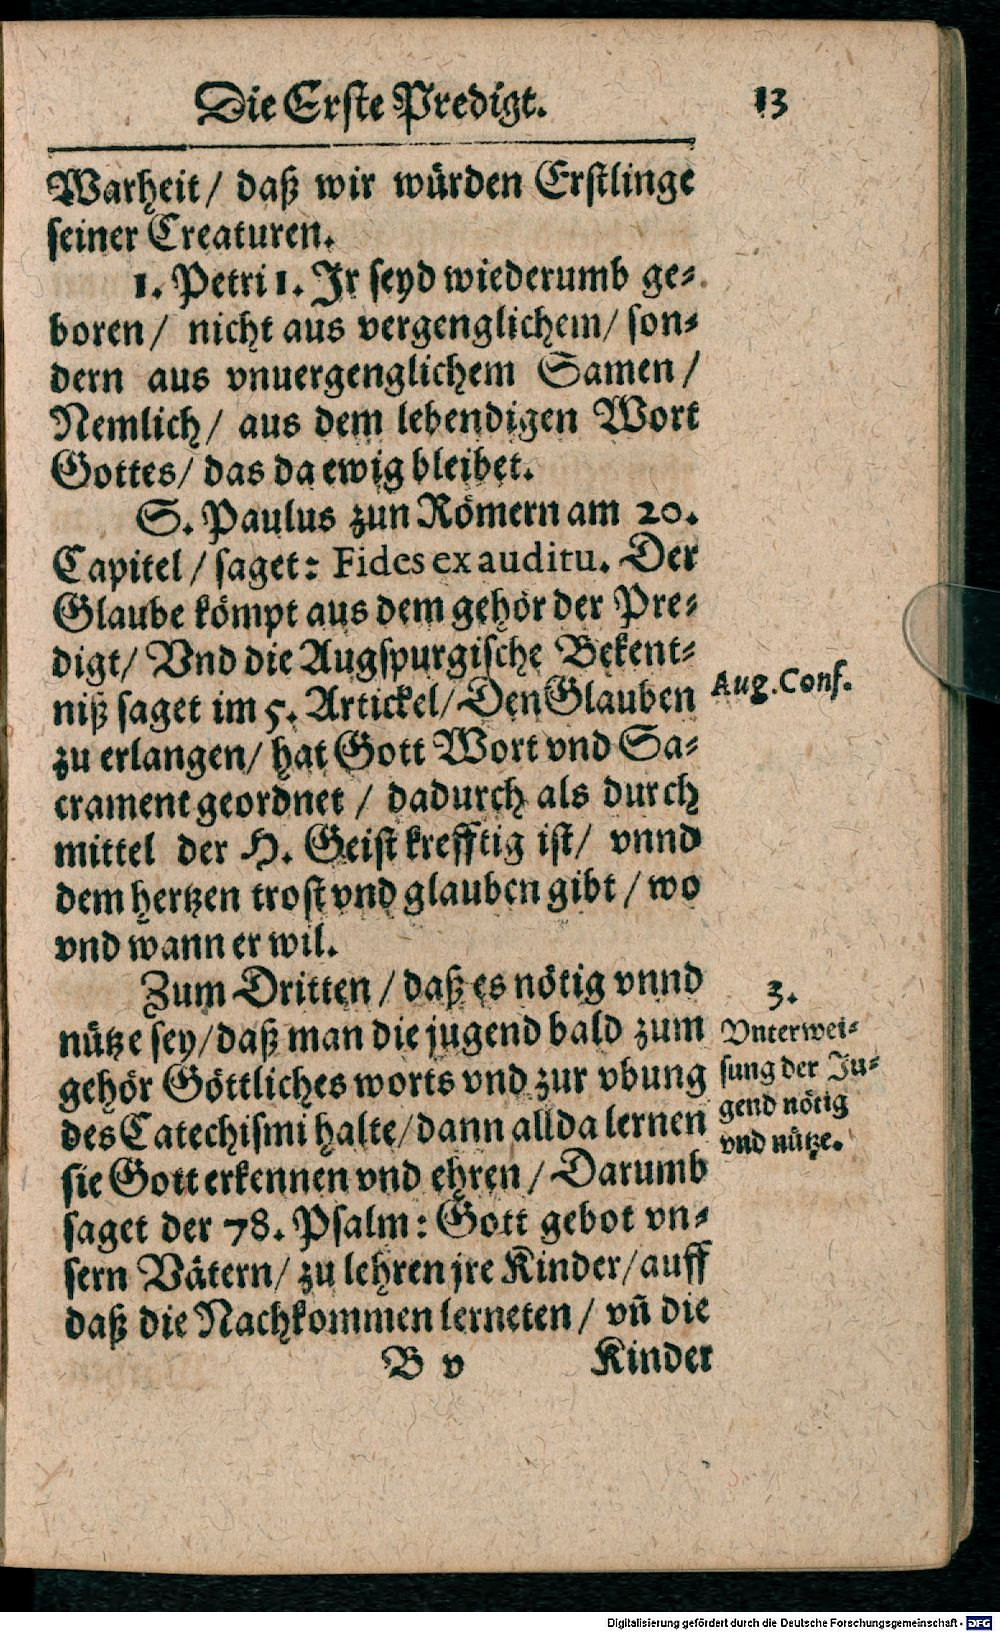 Die Erste Predigt. 13
Warheit/ daß wir würden Erstlinge
seiner Creaturen.
1. Petri 1. Jr seyd wiederumb ge-
boren/ nicht aus vergenglichem/ son-
dern aus vnuergenglichem Samen/
Nemlich/ aus dem lebendigen Wort
Gottes/ das da ewig bleibet.
S. Paulus zun Römern am 20.
Capitel/ saget: Fides ex auditu. Der
Glaube kömpt aus dem gehör der Pre-
digt/ Vnd die Augspurgische Bekent-
niß saget im 5. Artickel/ Den Glauben
Aug. Conf.
zu erlangen/ hat Gott Wort vnd Sa-
crament geordnet/ dadurch als durch
mittel der H. Geist krefftig ist/ vnnd
dem hertzen trost vnd glauben gibt/ wo
vnd wann er wil.
Zum Dritten/ daß es nötig vnnd
nütze sey/ daß man die jugend bald zum
gehör Göttliches worts vnd zur vbung
des Catechismi halte/ dann allda lernen
sie Gott erkennen vnd ehren/ Darumb
saget der 78. Psalm: Gott gebot vn-
sern Vätern/ zu lehren jre Kinder/ auff
daß die Nachkommen lerneten/ vñ die
3.
Vnterwei-
sung der Ju-
gend nötig
vnd nütze.
B v Kinder
Digitalisierung gefördert durch die Deutsche Forschungsgemeinschaft - DFG